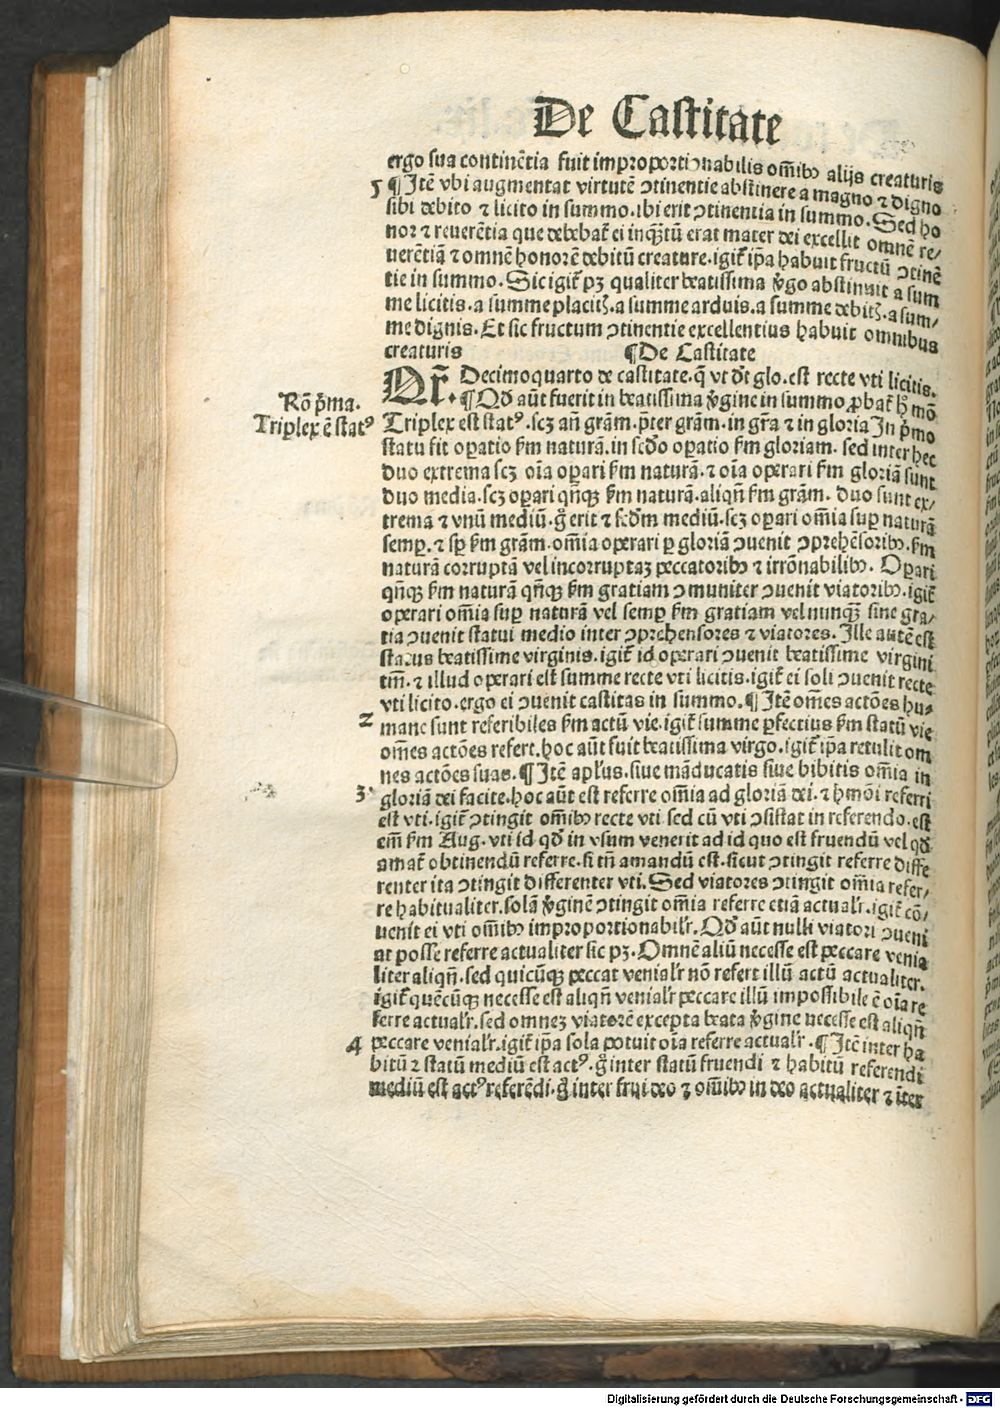 De Castitate
ergo sua continẽtia fuit improportionabilis oĩbꝫ alijs creaturis
5 ¶ Itẽ vbi augmentat virtutẽ ↄtinentie abstinere a magno ⁊ digno
sibi debito ⁊ licito in summo. ibi erit ↄtinentia in summo. Sed ho
nor ⁊ reuerẽtia que debebat̃ ei inqꝫtũ erat mater dei excellit omnẽ re/
uerẽtiã ⁊ omnẽ honorẽ debitũ creature. igit̃ ip̃a habuit fructũ ↄtinẽ
tie in summo. Sic igit̃ pꝫ qualiter beatissima ṽgo abstinuit a sum
me licitis. a summe placitꝭ. a summe arduis. a summe debitꝭ. a sum/
me dignis. Et sic fructum ↄtinentie excellentius habuit omnibus
creaturis ¶ De Castitate
Decimoquarto de castitate. q̃ vt dt̃ glo. est recte vti licitis.
Rõ p̃ma. ¶ Qđ aũt fuerit in beatissima ṽgine in summo ꝓbat̃ hͦ mõ
Triplex ẽ statꝰ Triplex est statꝰ. scꝫ añ grãm. p̃ter grãm. in gr̃a ⁊ in gloria In p̃mo
statu fit oꝑatio ẜm naturã. in scđo oꝑatio ẜm gloriam. sed inter hec
duo extrema scꝫ oĩa oꝑari ẜm naturã. ⁊ oĩa operari ẜm gloriã sunt
duo media. scꝫ oꝑari qñqꝫ ẜm naturã. aliqñ ẜm grãm. duo sunt ex/
trema ⁊ vnũ mediũ. g̃ erit ⁊ ẜcđm mediũ. scꝫ oꝑari oĩmia suꝑ naturã
semꝑ. ⁊ sꝑ ẜm grãm. oĩmia operari ꝑ gloriã ↄuenit ↄprehẽsoribꝫ. ẜm
naturã corruptã vel incorruptaꝫ peccatoribꝫ ⁊ irrõnabilibꝫ. Oꝑari
qñqꝫ ẜm naturã qñqꝫ ẜm gratiam ↄmuniter ↄuenit viatoribꝫ. igit̃
operari oĩmia suꝑ naturã vel semꝑ ẜm gratiam vel nunqꝫ sine gra/
tia ↄuenit statui medio inter ↄprehensores ⁊ viatores. Ille autẽ est
status beatissime virginis. igit̃ id operari ↄuenit beatissime virgini
tm̃. ⁊ illud operari est summe recte vti licitis. igit̃ ei soli ↄuenit recte
vti licito. ergo ei ↄuenit castitas in summo. ¶ Itẽ om̃es actões hu/
2 mane sunt referibiles ẜm actũ vie. igit̃ summe ꝑfectius ẜm statũ vie
om̃es actões refert. hoc aũt fuit beatissima virgo. igit̃ ip̃a retulit om
nes actões suas. ¶ Itẽ apl̃us. siue mãducatis siue bibitis oĩmia in
3 gloriã dei facite. hoc aũt est referre oĩmia ad gloriã dei. ⁊ hmõi referri
est vti. igit̃ ↄtingit oĩmibꝫ recte vti sed cũ vti ↄsistat in referendo. est
em̃ ẜm Aug. vti id qđ in vsum venerit ad id quo est fruendũ vel qđ
amat̃ obtinendũ referre. si tñ amandũ est. sicut ↄtingit referre diffe
renter ita ↄtingit differenter vti. Sed viatores ↄtingit oĩmia refer/
re habitualiter. solã ṽginẽ ↄtingit oĩmia referre etiã actual'r. igit̃ cõ/
uenit ei vti oĩmibꝫ improportionabil'r. Qđ aũt nulli viatori ↄueni
at posse referre actualiter sic pꝫ. Omnẽ aliũ necesse est peccare venia
liter aliqñ. sed quicũqꝫ peccat venial'r nõ refert illũ actũ actualiter.
igit̃ quẽcũqꝫ necesse est aliqñ venial'r peccare illũ impossibile ẽ oĩa re
ferre actual'r. sed omneꝫ viatorẽ excepta beata ṽgine necesse est aliqñ
4 peccare venial'r. igit̃ ip̃a sola potuit oĩa referre actual'r. ¶ Itẽ inter ha
bitũ ⁊ statũ mediũ est actꝰ. g̃ inter statũ fruendi ⁊ habitũ referendi
mediũ est actꝰ referẽdi. g̃ inter frui deo ⁊ oĩmibꝫ in deo actualiter ⁊ ĩter
Digitalisierung gefördert durch die Deutsche Forschungsgemeinschaft - DFG